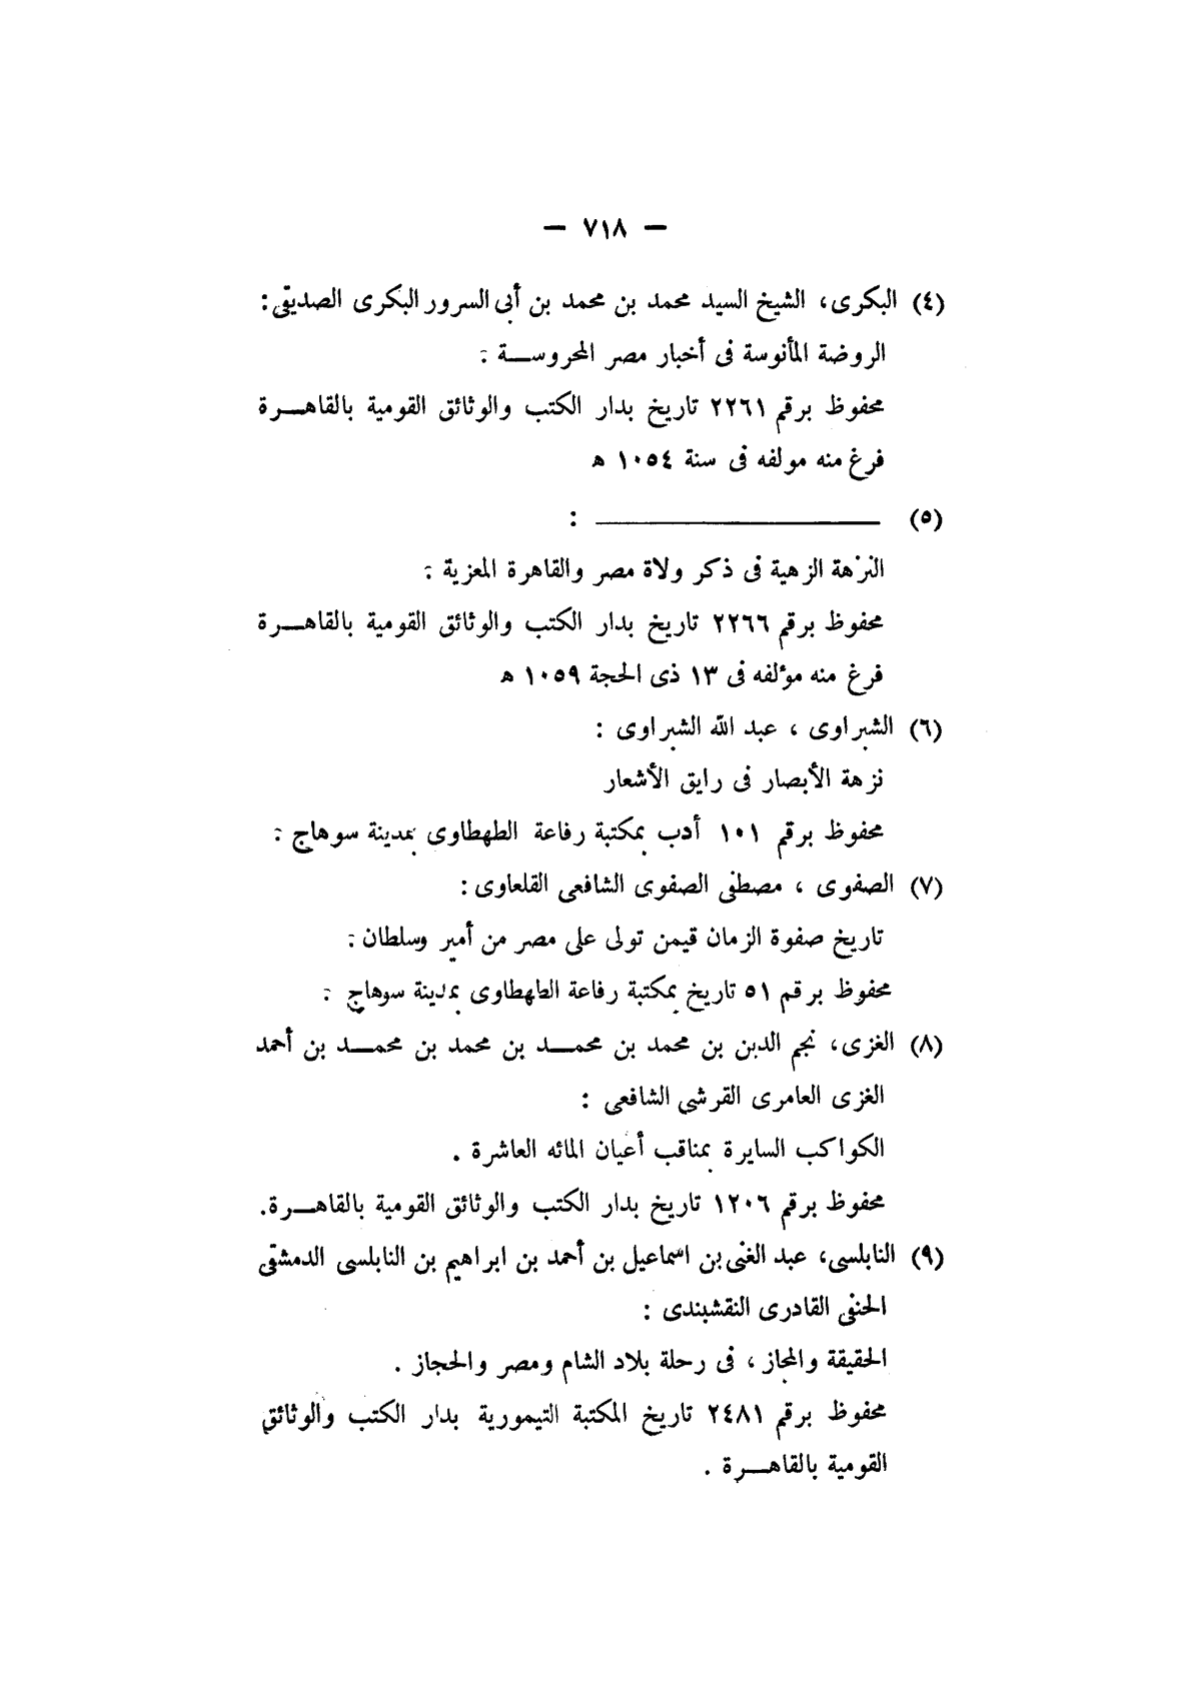 — ٧١٨ —
(٤) البكرى، الشيخ السيد محمد بن محمد بن أبى السرور البكرى الصديقى :
الروضة المأنوسة فى أخبار مصر المحروسة :
محفوظ برقم ٢٢٦١ تاريخ بدار الكتب والوثائق القومية بالقاهرة
فرغ منه مولفه فى سنة ١٠٥٤ ه
(٥) ــــــــــــــــــــ :
النزهة الزهية فى ذكر ولاة مصر والقاهرة المعزية :
محفوظ برقم ٢٢٦٦ تاريخ بدار الكتب والوثائق القومية بالقاهرة
فرغ منه مؤلفه فى ١٣ ذى الحجة ١٠٥٩ ه
(٦) الشبراوى ، عبد الله الشبراوى :
نزهة الأبصار فى رايق الأشعار
محفوظ برقم ١٠١ أدب بمكتبة رفاعة الطهطاوى بمدينة سوهاج :
(٧) الصفوى ، مصطفى الصفوى الشافعى القلعاوى :
تاريخ صفوة الزمان قيمن تولى على مصر من أمير وسلطان :
محفوظ برقم ٥١ تاريخ بمكتبة رفاعة الطهطاوى بمدينة سوهاج :
(٨) الغزى، نجم الدين بن محمد بن محمد بن محمد بن محمد بن أحمد
الغزى العامرى القرشى الشافعى :
الكواكب السايرة بمناقب أعيان المائه العاشرة .
محفوظ برقم ١٢٠٦ تاريخ بدار الكتب والوثائق القومية بالقاهرة.
(٩) النابلسى، عبد الغنى بن اسماعيل بن أحمد بن ابراهيم بن النابلسى الدمشقى
الحنفى القادرى النقشبندى :
الحقيقة والمجاز ، فى رحلة بلاد الشام ومصر والحجاز .
محفوظ برقم ٢٤٨١ تاريخ المكتبة التيمورية بدار الكتب والوثائق
القومية بالقاهرة .